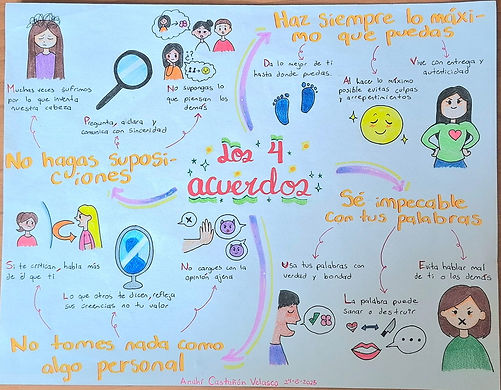 Los 4
acuerdos
Haz siempre lo máxi-
mo que puedas
Da lo mejor de ti
hasta donde puedas.
Al hacer lo máximo
posible evitas culpas
y arrepentimientos
Vive con entrega y
autenticidad
Sé impecable
con tus palabras
Usa tus palabras con
verdad y bondad
La palabra puede
sanar o destruir
Evita hablar mal
de ti o los demás
No hagas suposi-
ciones
Muchas veces sufrimos
por lo que inventa
nuestra cabeza
Pregunta, aclara y
comunica con sinceridad
No supongas lo
que piensan los
demás
No tomes nada como
algo personal
Si te critican, habla más
de él que ti
Lo que otros te dicen, refleja
sus creencias no tu valor
No cargues con la
opinión ajena
Anahí Castañón Velasco